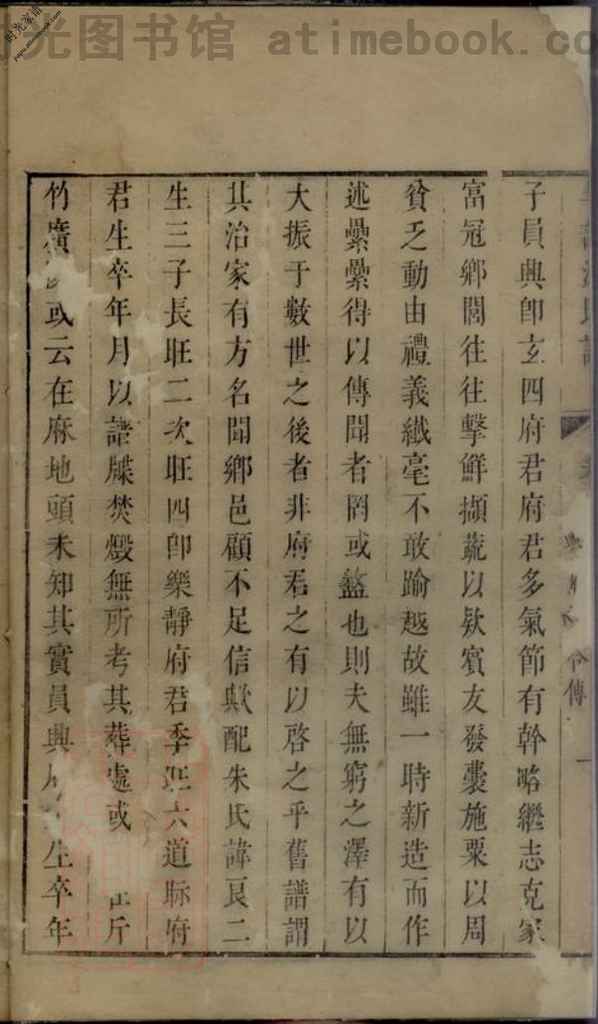 时光图书馆 atimebook.com
子員興卽玄四府君府君多氣節有幹略繼志克家
富冠鄉閭往往擊鮮擷蔬以欵賓友發囊施粟以周
貧乏動由禮義纎毫不敢踰越故雖一時新造而作
述纍纍得以傳聞者罔或盭也則夫無窮之澤有以
大振于數世之後者非府君之有以啓之乎舊譜謂
其治家有方名聞鄉邑顧不足信歟配朱氏諱艮二
生三子長旺二次旺四卽樂靜府君季旺六道縣府
君生卒年月以譜牒焚燬無所考其葬處或斤
竹廣或云在麻地頭未知其實員興生卒年